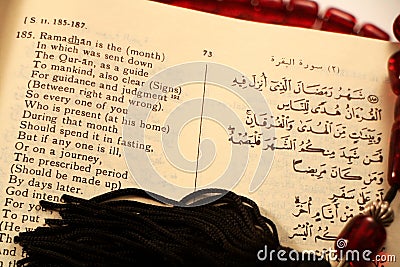 [ S. II. 185-187.
73
(٢) سورة البقرة
185. Ramadhan is the (month)
In which was sent down
The Qur-an, as a guide
To mankind, also clear (Signs)
For guidance and judgment
(Between right and wrong).
So every one of you
Who is present (at his home)
During that month
Should spend it in fasting,
But if any one is ill,
Or on a journey,
The prescribed period
(Should be made up)
By days later.
God inten
For you
To put
He w
To
شَهْرُ رَمَضَانَ الَّذِي أُنْزِلَ فِيهِ
الْقُرْآنُ هُدًى لِلنَّاسِ
وَبَيِّنَاتٍ مِنَ الْهُدَى وَالْفُرْقَانِ
فَمَنْ شَهِدَ مِنْكُمُ الشَّهْرَ فَلْيَصُمْهُ
وَمَنْ كَانَ مَرِيضًا
أَوْ عَلَى سَفَرٍ
مِنْ أَيَّامٍ أُخَرَ
كُمُ الْيُسْرَ
dreamstime